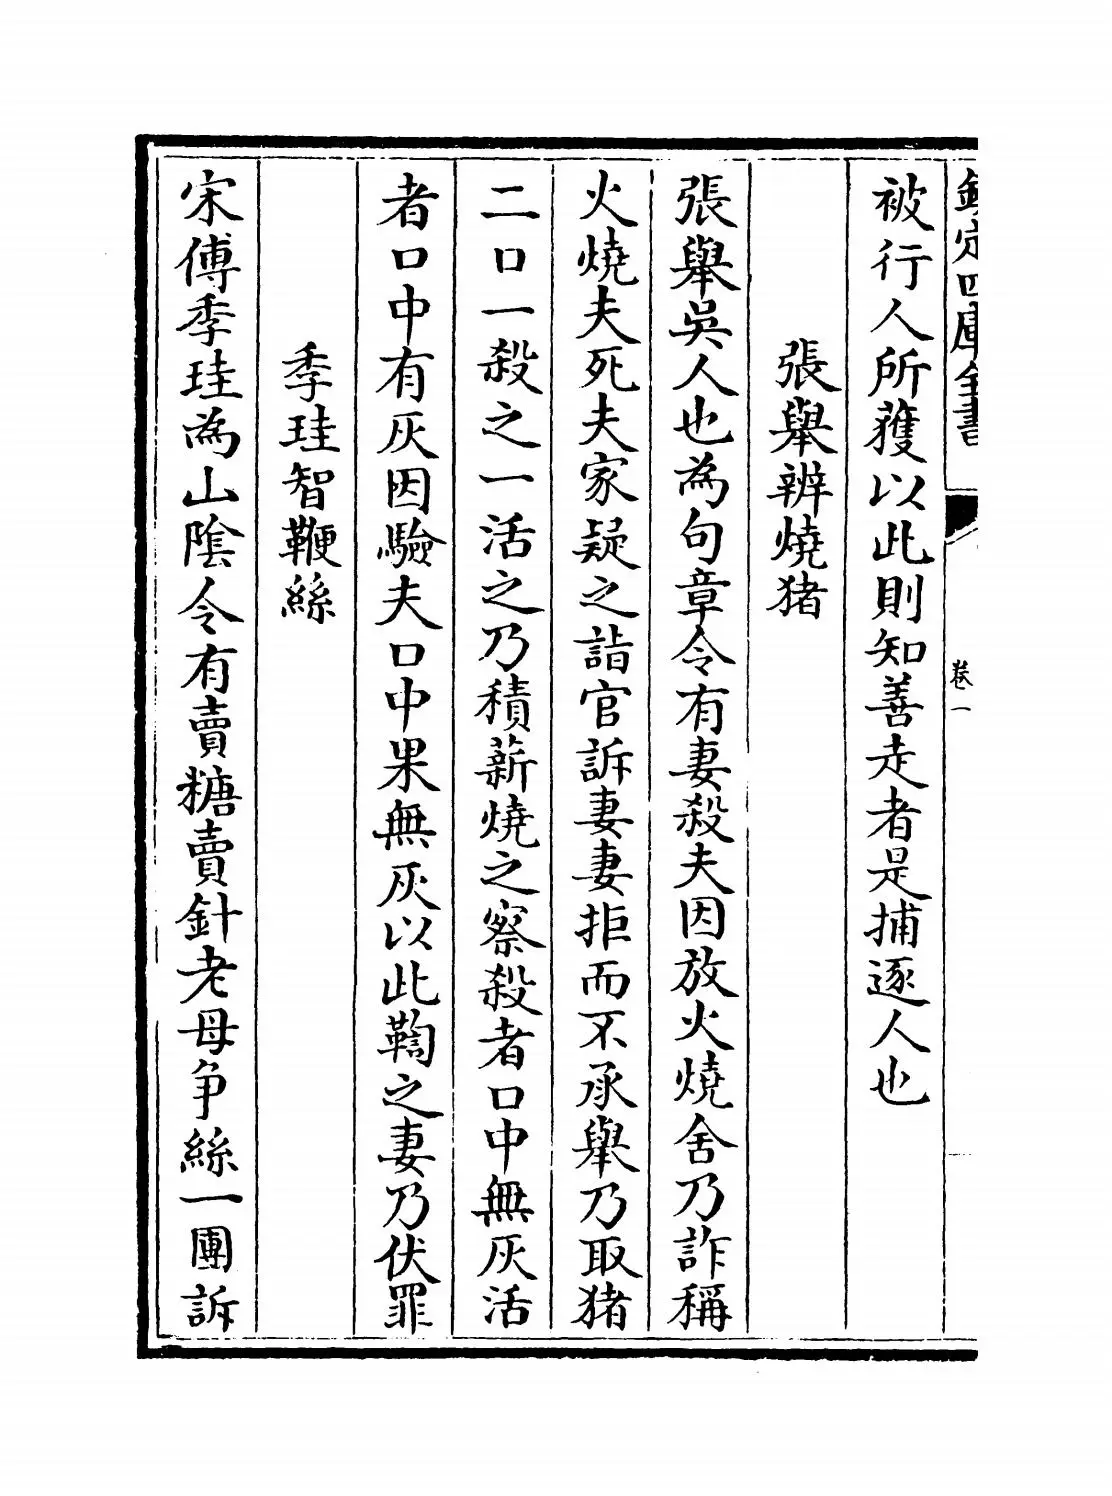 欽定四庫全書
卷一
被行人所獲以此則知善走者是捕逐人也
張舉辨燒猪
張舉吳人也為句章令有妻殺夫因放火燒舍乃詐稱
火燒夫死夫家疑之詣官訴妻妻拒而不承舉乃取猪
二口一殺之一活之乃積薪燒之察殺者口中無灰活
者口中有灰因驗夫口中果無灰以此鞫之妻乃伏罪
季珪智鞭絲
宋傅季珪為山隂令有賣糖賣針老母争絲一團訴